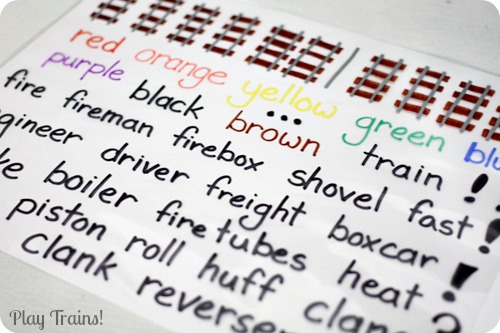 red orange yellow green
purple black ... brown train !
fire fireman firebox shovel fast !
driver freight boxcar !
boiler firetubes heat !
piston roll huff
clank reverse
Play Trains!